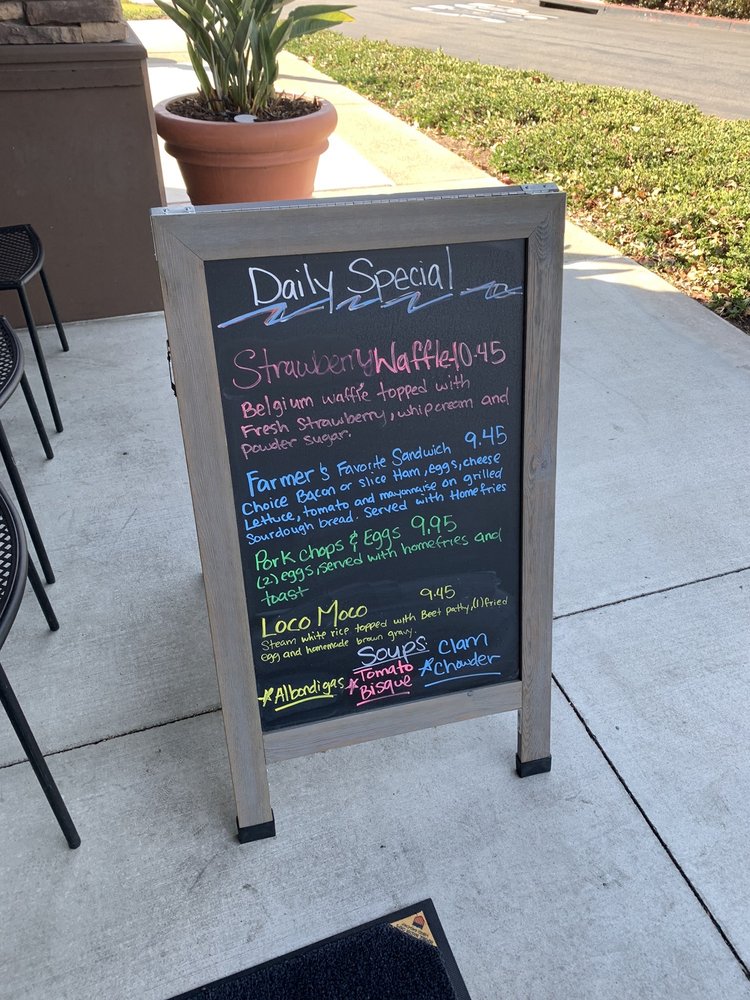 Daily Special
Strawberry Waffle-10.45
Belgium waffle topped with
Fresh Strawberry, whip cream and
powder sugar.
Farmer's Favorite Sandwich 9.45
Choice Bacon or slice Ham, eggs, cheese
Lettuce, tomato and mayonnaise on grilled
Sourdough bread. Served with Homefries
Pork chops & Eggs 9.95
(2) eggs, served with homefries and
toast
Loco Moco 9.45
Steam white rice topped with Beef pathy, (1) fried
egg and homemade brown gravy.
Soups
☆Albondigas
☆Tomato
Bisque
☆Clam
Chowder